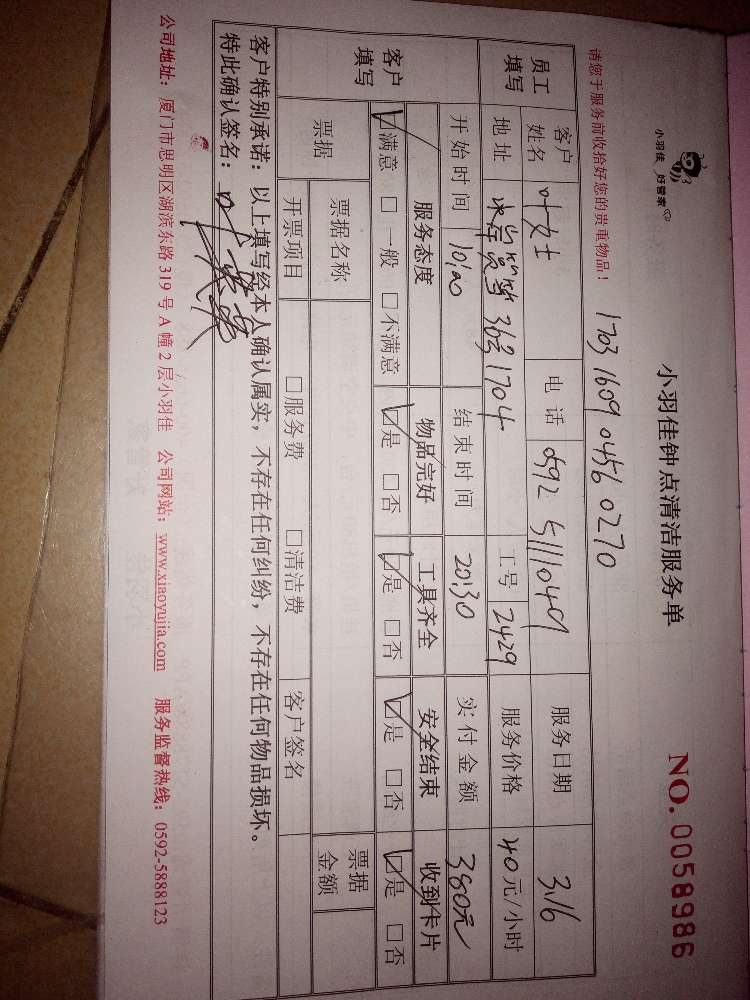 小羽佳 好管家
小羽佳钟点清洁服务单
NO.0058986
请您于服务前收给好您的贵重物品!
1703 1609 0456 0270
员工填写
客户姓名 叶女士 电话 0592 5111049 服务日期 3.16
地址 36号1704 工号 2429 服务价格 40元/小时
开始时间 10:00 结束时间 20:30 实付金额 380元
客户填写
服务态度 物品完好 工具齐全 安全结束 收到卡片
☑满意 □一般 □不满意 ☑是 □否 ☑是 □否 ☑是 □否 ☑是 □否
票据 票据名称 票据金额
开票项目 □服务费 □清洁费 客户签名
客户特别承诺:以上填写经本人确认属实,不存在任何纠纷,不存在任何物品损坏。
特此确认签名:
公司地址:厦门市思明区湖滨东路319号A幢2层小羽佳 公司网站:www.xiaoyujia.com 服务监督热线:0592-5888123